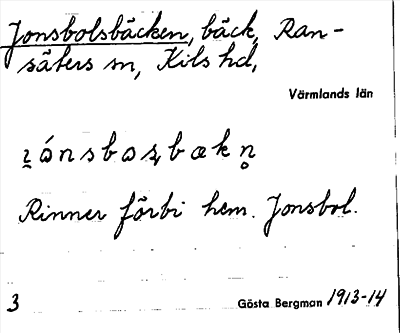 Jonsbolsbäcken, bäck, Ran-
säters sn, Kils hd,
Värmlands län
Rinner förbi hem. Jonsbol.
3
Gösta Bergman 1913-14